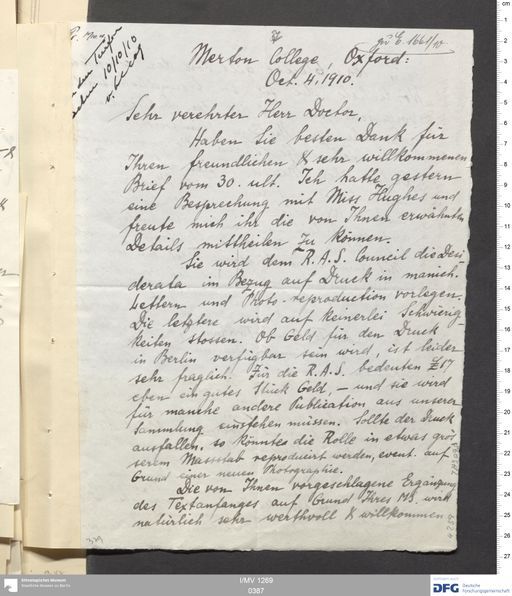 zu E. 1661/10
10/10/10
Merton College, Oxford:
Oct. 4, 1910.
Sehr verehrter Herr Doctor,
Haben Sie besten Dank für
Ihren freundlichen & sehr willkommenen
Brief vom 30. ult. Ich hatte gestern
eine Besprechung mit Miss Hughes und
freute mich ihr die von Ihnen erwähnten
Details mittheilen zu können.
Sie wird dem R.A.S. Council die Desi-
derata in Bezug auf Druck in manich.
Lettern und Photo-reproduction vorlegen.
Die letztere wird auf keinerlei Schwierig-
keiten stossen. Ob Geld für den Druck
in Berlin verfügbar sein wird, ist leider
sehr fraglich. Für die R.A.S. bedeuten £17
eben ein gutes Stück Geld, – und sie wird
für manche andere Publication aus unserer
Sammlung einstehen müssen. Sollte der Druck
ausfallen, so könnte die Rolle in etwas grös-
serem Massstab reproducirt werden, event. auf
Grund einer neuen Photographie.
Die von Ihnen vorgeschlagene Ergänzung
des Textanfanges auf Grund Ihres MS. wird
natürlich sehr werthvoll & willkommen
379
Ethnologisches Museum
Staatliche Museen zu Berlin
I/MV 1269
0387
DFG
Deutsche
Forschungsgemeinschaft